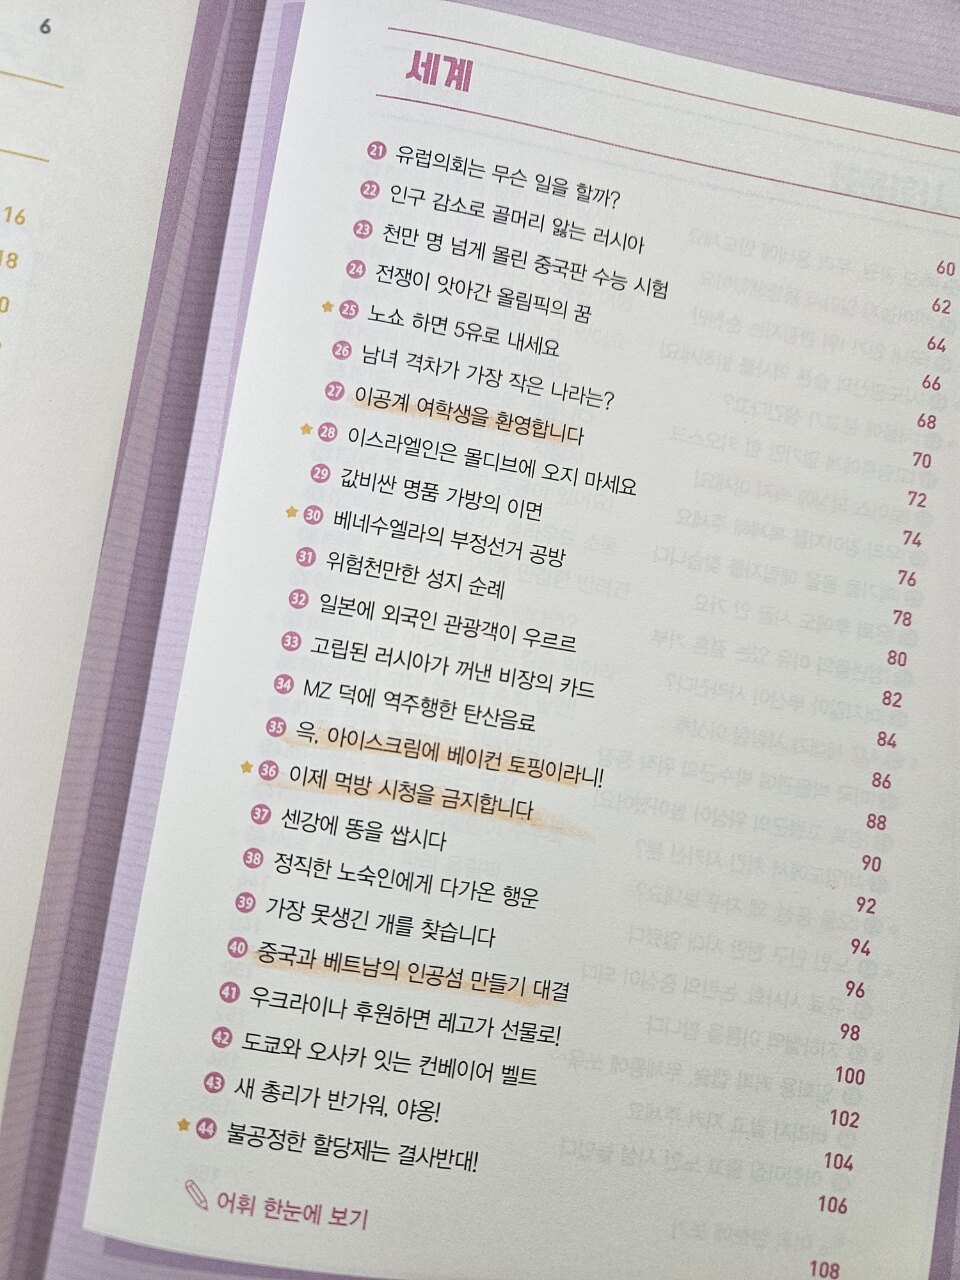 6
16
18
세계
21 유럽의회는 무슨 일을 할까? 60
22 인구 감소로 골머리 앓는 러시아 62
23 천만 명 넘게 몰린 중국판 수능 시험 64
24 전쟁이 앗아간 올림픽의 꿈 66
25 노쇼 하면 5유로 내세요 68
26 남녀 격차가 가장 작은 나라는? 70
27 이공계 여학생을 환영합니다 72
28 이스라엘인은 몰디브에 오지 마세요 74
29 값비싼 명품 가방의 이면 76
30 베네수엘라의 부정선거 공방 78
31 위험천만한 성지 순례 80
32 일본에 외국인 관광객이 우르르 82
33 고립된 러시아가 꺼낸 비장의 카드 84
34 MZ 덕에 역주행한 탄산음료 86
35 윽, 아이스크림에 베이컨 토핑이라니! 88
36 이제 먹방 시청을 금지합니다 90
37 센강에 똥을 쌉시다 92
38 정직한 노숙인에게 다가온 행운 94
39 가장 못생긴 개를 찾습니다 96
40 중국과 베트남의 인공섬 만들기 대결 98
41 우크라이나 후원하면 레고가 선물로! 100
42 도쿄와 오사카 잇는 컨베이어 벨트 102
43 새 총리가 반가워, 야옹! 104
44 불공정한 할당제는 결사반대! 106
어휘 한눈에 보기 108